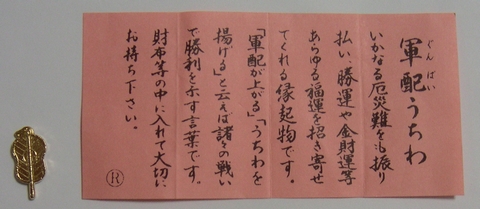 軍配うちわ
ぐんばい
いかなる厄災難をも振り
払い、勝運や金財運等
あらゆる福運を招き寄せ
てくれる縁起物です。
「軍配が上がる」「うちわを
揚げる」と云えば諸々の戦い
で勝利を示す言葉です。
財布等の中に入れて大切に
お持ち下さい。
Ⓡ